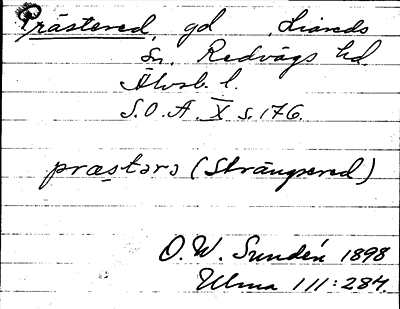 Prästered, gd, Liareds
Sn. Redvägs hd.
Älvsb. l.
S.O.Ä. X s. 176.
præstərə (Strängsered)
O.W. Sundén 1898
Ulma 111:284.